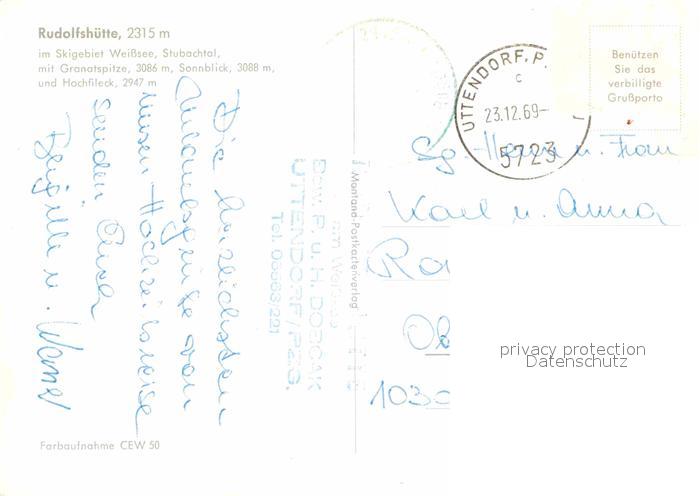 Rudolfshütte, 2315 m
im Skigebiet Weißsee, Stubachtal,
mit Granatspitze, 3086 m, Sonnblick, 3088 m,
und Hochfileck, 2947 m
Die herzlichsten
Urlaubsgrüße von
unserer Hochzeitsreise
senden Euch
Brigitte u. Werner
Farbaufnahme CEW 50
Bew. P. u. H. DOBČAK
UTTENDORF/PZG.
Tel. 06563/221
Montand-Postkartenverlag
UTTENDORF, P.
c
23.12.69-
5723
Benützen
Sie das
verbilligte
Grußporto
Sg. Herrn u. Frau
Karl u. Anna
1030
privacy protection
Datenschutz